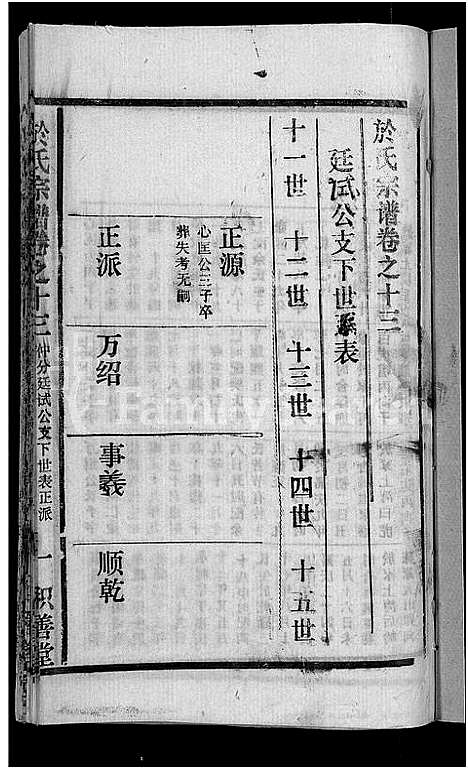 於氏宗谱卷之十三
廷试公支下世系表
十一世 十二世 十三世 十四世 十五世
正源
心匡公三子卒
葬失考无嗣
正派 万绍 事羲 顺乾
於氏宗谱卷之十三 仲分廷试公支下世表正派 一 积善堂